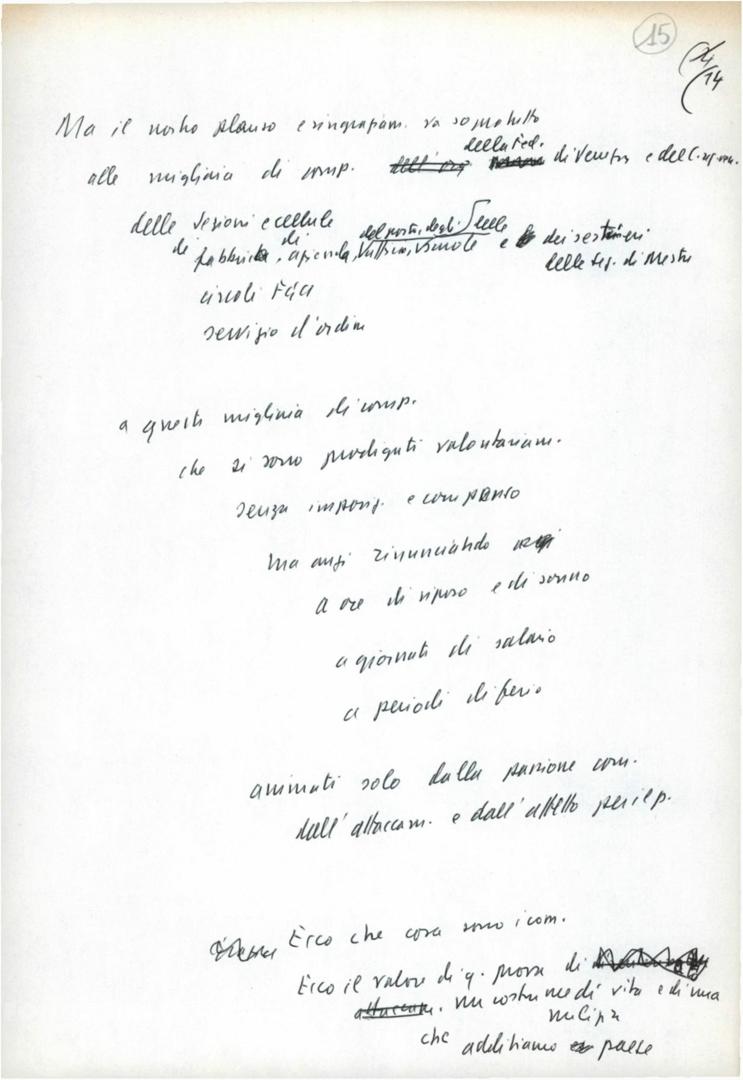 15
14
Ma il nostro plauso e ringraziam. va sopratutto
della Fed.
alle migliaia di comp. dell'org di Venezia e del C.
delle sezioni e cellule
del porto, degli
di fabbrica, di azienda, scuole e dei sestieri
delle sez. di Mestre
circoli FGCI
servizio d'ordine
a questi migliaia di comp.
che si sono prodigati volontariam.
senza impong. e compenso
ma anzi rinunciando
a ore di riposo e di sonno
a giornate di salario
a periodi di ferie
animati solo dalla passione com.
dall'attaccam. e dall'affetto per il p.
Ecco che cosa sono i com.
Ecco il valore di q. prova di
attaccam. un costume di vita e di una
milizia
che additiamo paese